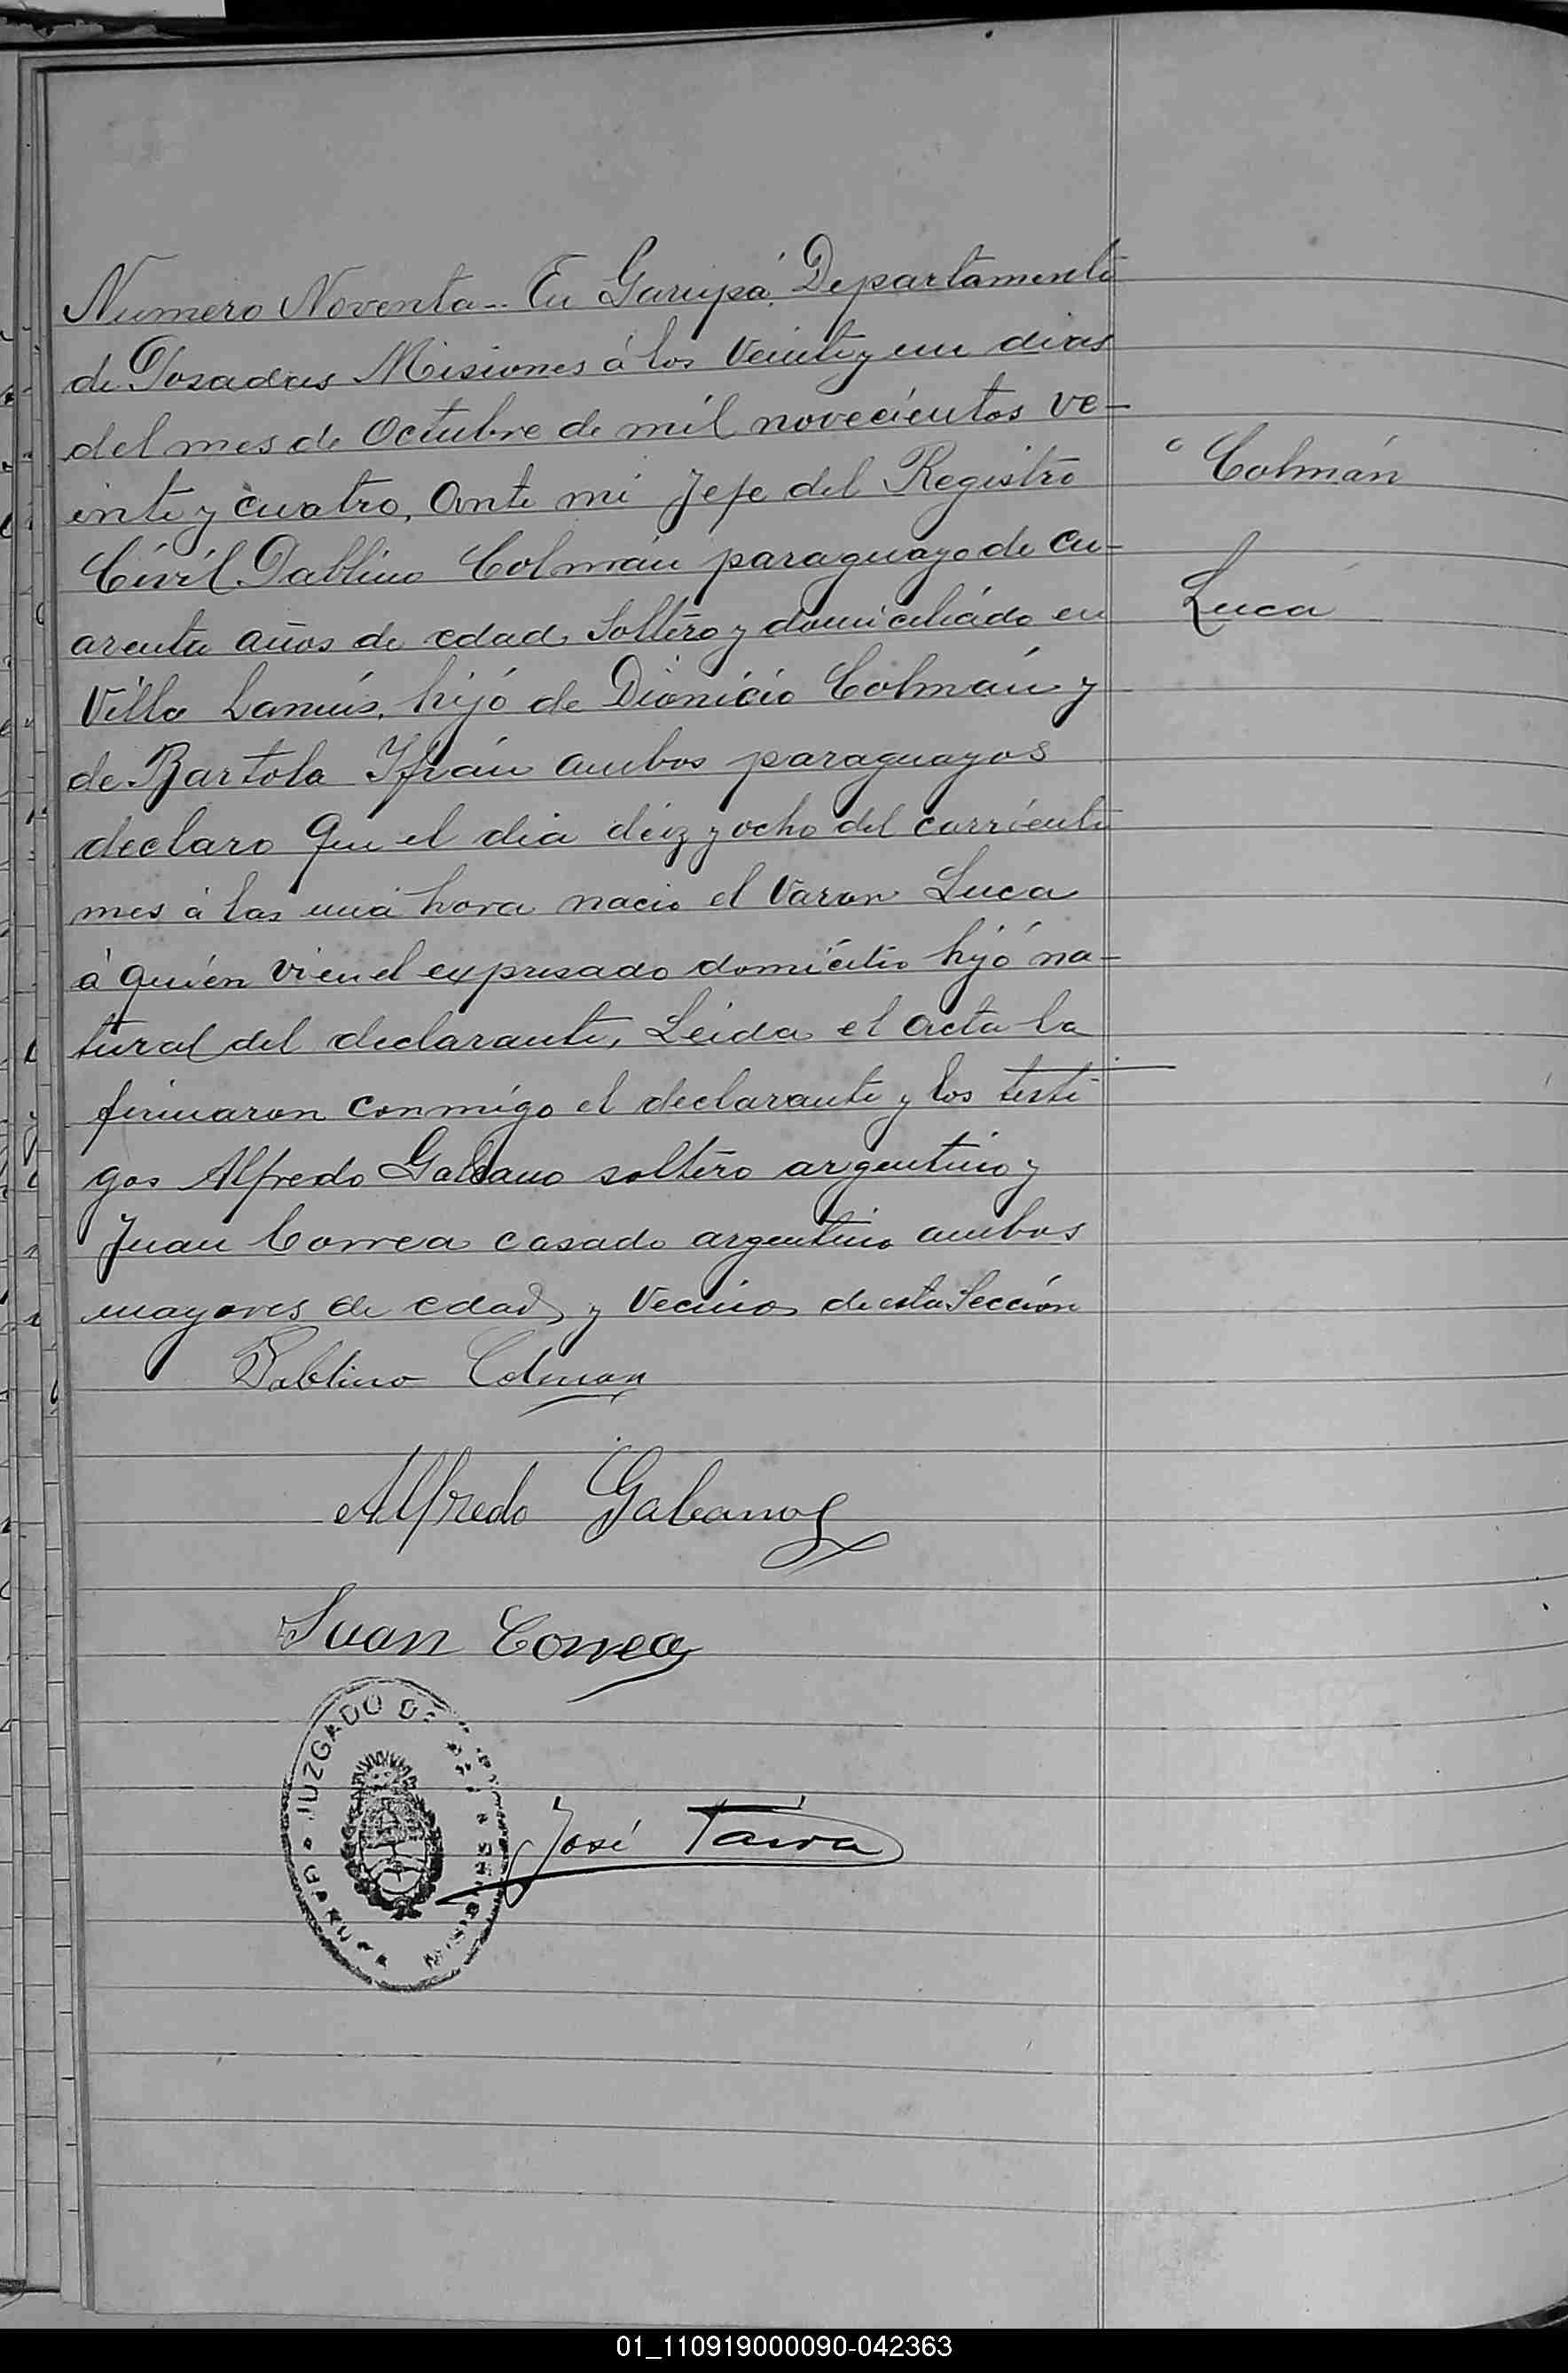 Numero Noventa-- En Garupá, Departamento
de Posadas Misiones á los Veinte y un dias
del mes de Octubre de mil novecientos ve-
inte y cuatro, Ante mi Jefe del Registro
Civíl. Pablino Colmán paraguayo de cu-
arenta años de edad, Soltero y domiciliado en
Villa Lanús, hijó de Dionicio Colmán y
de Bartola Ifrán ambos paraguayos
declaro Que el dia deiz y ocho del corriente
mes á las una hora nacio el Varon Luca
á quien vi en el expresado domicilio hijó na-
tural del declarante, Leida el acta la
firmaron conmigo el declarante y los testi
gos Alfredo Galeano soltero argentino y
Juan Correa casado argentino ambos
mayores de edad, y Vecinos de esta Sección
Pablino Colman
Alfredo Galeano
Juan Correa
José
JUZGADO DE
MISIONES
GARUPA
Colmán
Luca
01_110919000090-042363